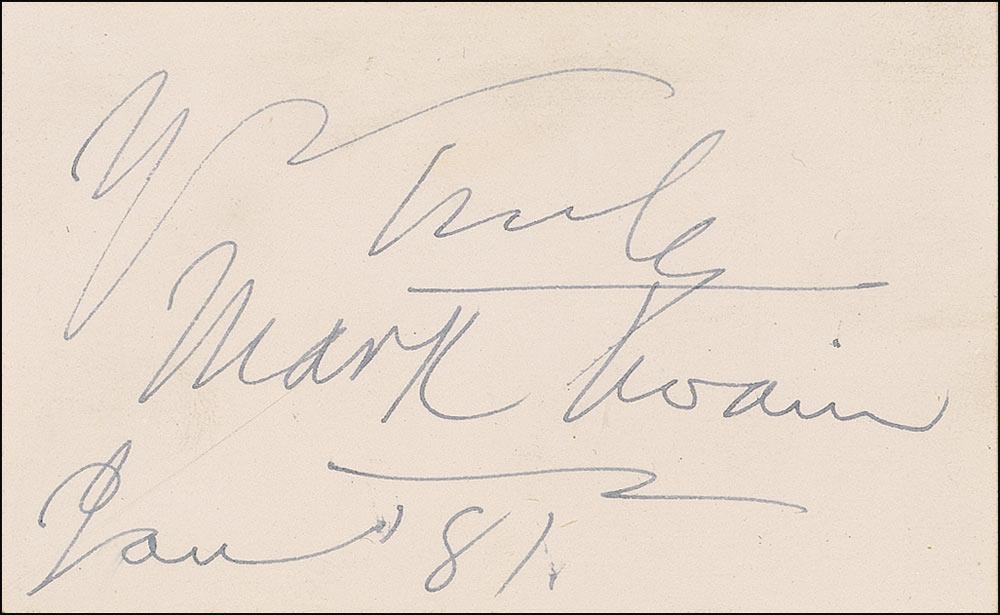 Y Truly
Mark Twain
Jan '81.